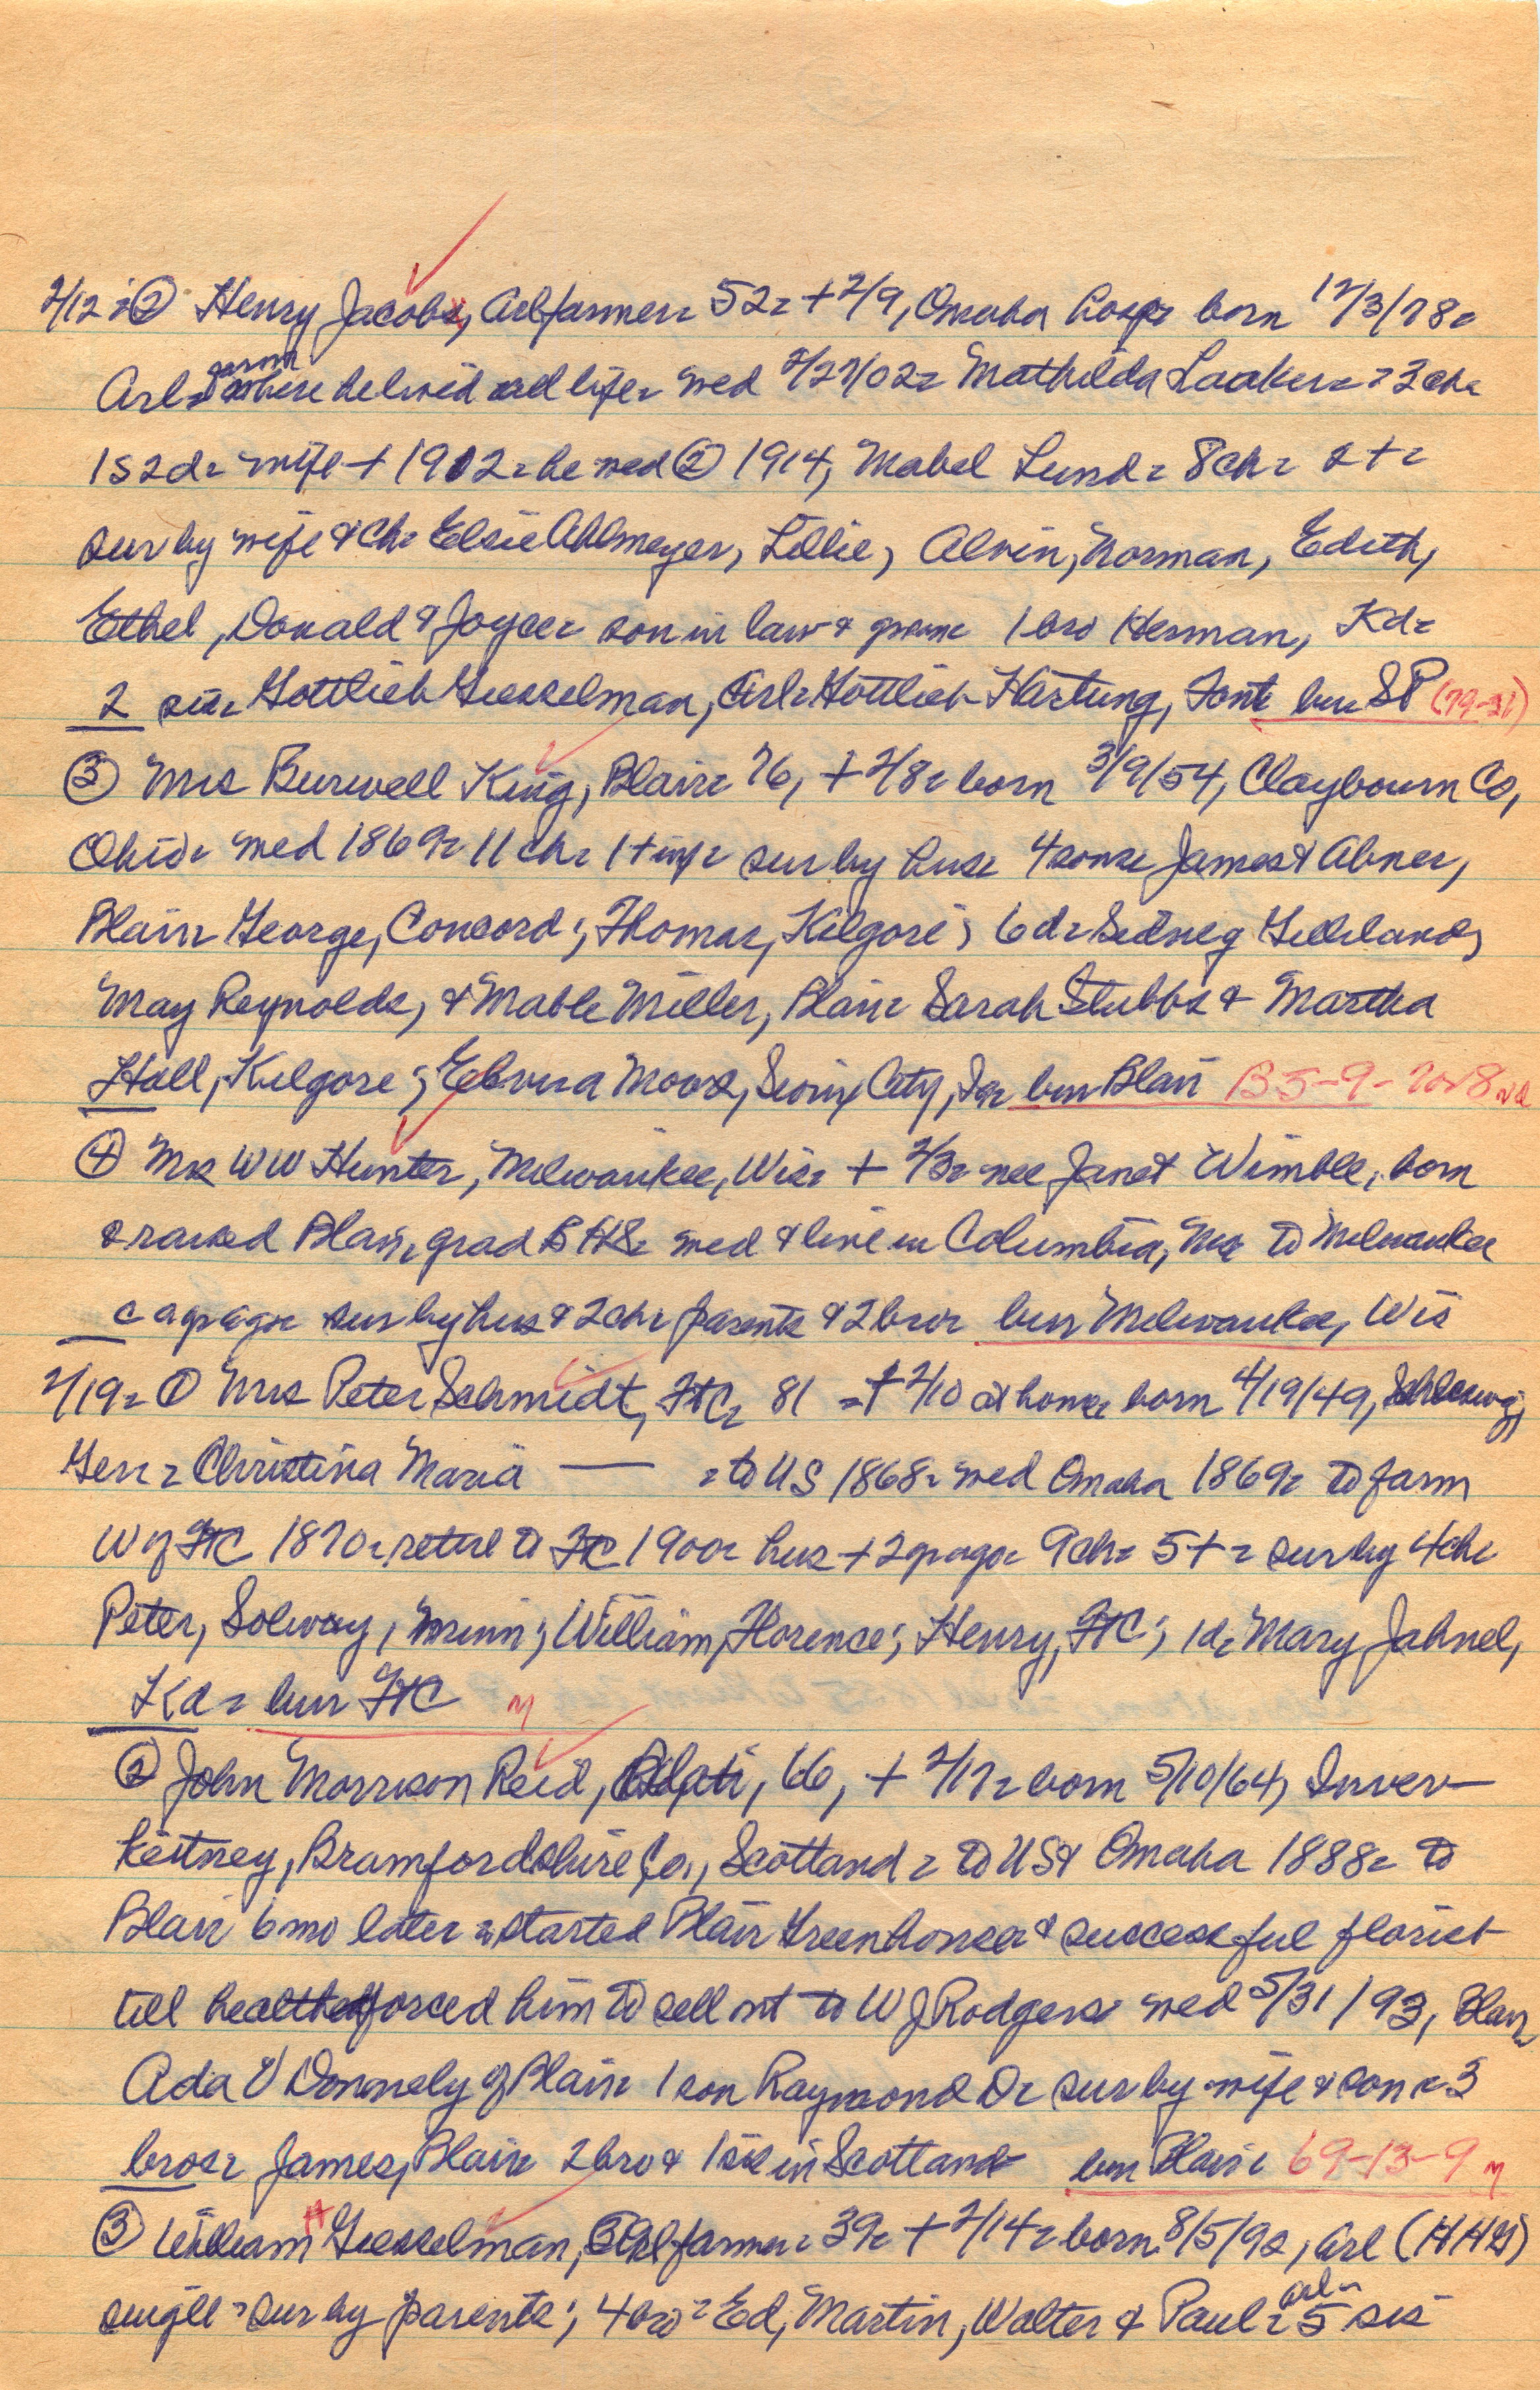 2/12 = ② Henry Jacobs, Arl farmer = 52 = + 2/9, Omaha hosp = born 12/3/78 =
Arl = farm where he lived all life = med 2/27/02 = Mathilda Laaker = 3 ch =
1 s 2 d = wife + 1912 = he med ② 1914, Mabel Lund = 8 ch = 2 + =
sur by wife & ch = Elsie Ahlmeyer, Lillie, Alvin, Norman, Edith,
Ethel, Donald & Joyce = son in law & 1 bro Herman, Kd =
2 sis = Gottlieb Giesselman, Arl = Gottlieb Hartung, Font = bur SP (79-31)
③ Mrs Burwell King, Blair = 76, + 2/8 = born 3/9/54, Claybourn Co,
Ohio = med 1869 = 11 ch = 1 + inf = sur by hus = 4 sons = James & Abner,
Blair = George, Concord; Thomas, Kilgore; 6 d = Sidney Gilliland,
May Reynolds, & Mable Miller, Blair = Sarah Stubbs & Martha
Hall, Kilgore; Moore, Sioux City, Ia = bur Blair B 5-9-
④ Mrs W W Hunter, Milwaukee, Wis = + 2/3 = nee Janet Wimble, born
& raised Blair, grad BHS = med & live in Columbia, to Milwaukee
sur by hus & 2 ch = parents & 2 bro = bur Milwaukee, Wis
2/19 = ① Mrs Peter Schmidt, FtC = 81 = + 2/10 at home = born 4/19/49, Schleswig,
Ger = Christina Maria — = to US 1868 = med Omaha 1869 = to farm
W of FtC 1870 = retire to FtC 1900 = hus + 2 yrs ago = 9 ch = 5 + = sur by 4 ch =
Peter, Solway, Minn; William, Florence; Henry, FtC; 1 d = Mary Jahnel,
Kd = bur FtC n
② John Morrison Reid, 66, + 2/17 = born 5/10/64, Inver-
keitney, Bramfordshire Co, Scotland = to US & Omaha 1888 = to
Blair 6 mo later = started Blair Greenhouse & successful florist
till health forced him to sell out to W J Rodgers = med 5/31/93, Blair
Ada V Donnely of Blair = 1 son Raymond D = sur by wife & son = 3
bros = James, Blair = 2 bro & 1 sis in Scotland bur Blair = 69-13-9 n
③ William H Giesselman, Arl farmer = 39 = + 2/14 = born 8/5/92, Arl (HHG)
single = sur by parents; 4 bro = Ed, Martin, Walter & Paul = Arl = 5 sis